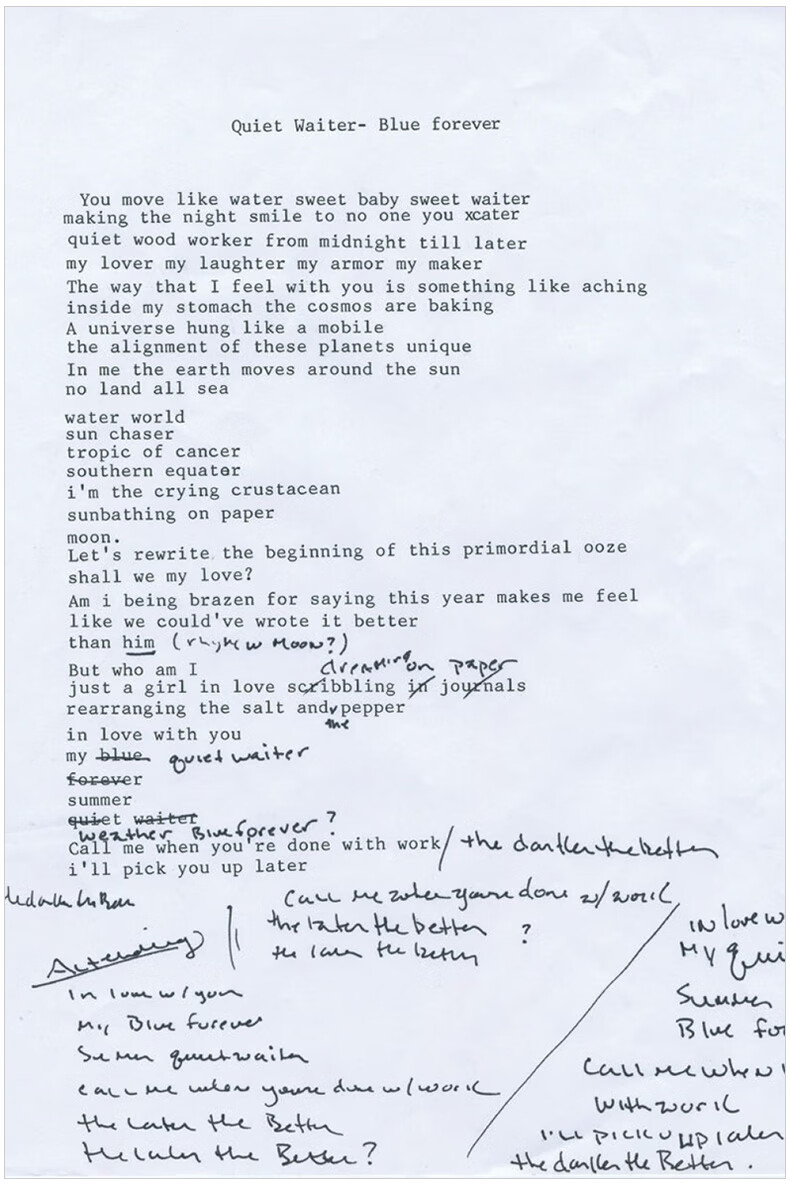 Quiet Waiter- Blue forever
You move like water sweet baby sweet waiter
making the night smile to no one you xcater
quiet wood worker from midnight till later
my lover my laughter my armor my maker
The way that I feel with you is something like aching
inside my stomach the cosmos are baking
A universe hung like a mobile
the alignment of these planets unique
In me the earth moves around the sun
no land all sea
water world
sun chaser
tropic of cancer
southern equator
i'm the crying crustacean
sunbathing on paper
moon.
Let's rewrite the beginning of this primordial ooze
shall we my love?
Am i being brazen for saying this year makes me feel
like we could've wrote it better
than him (rhyme w moon?)
But who am I
dreaming on paper
just a girl in love scribbling in journals
rearranging the salt and pepper
the
in love with you
my blue quiet waiter
forever
summer
quiet waiter
weather Blue forever?
Call me when you're done with work/ the darker the better
i'll pick you up later
Call me when youre done w/ work
the later the better ?
the later the better
Alternate
In love w/ you
My Blue forever
Summer quiet waiter
call me when youre done w/ work
the later the Better
the later the Better?
IN love w
My Qui
Summer
Blue fo
Call me when
with work
I'll pick u up later
the darker the Better.